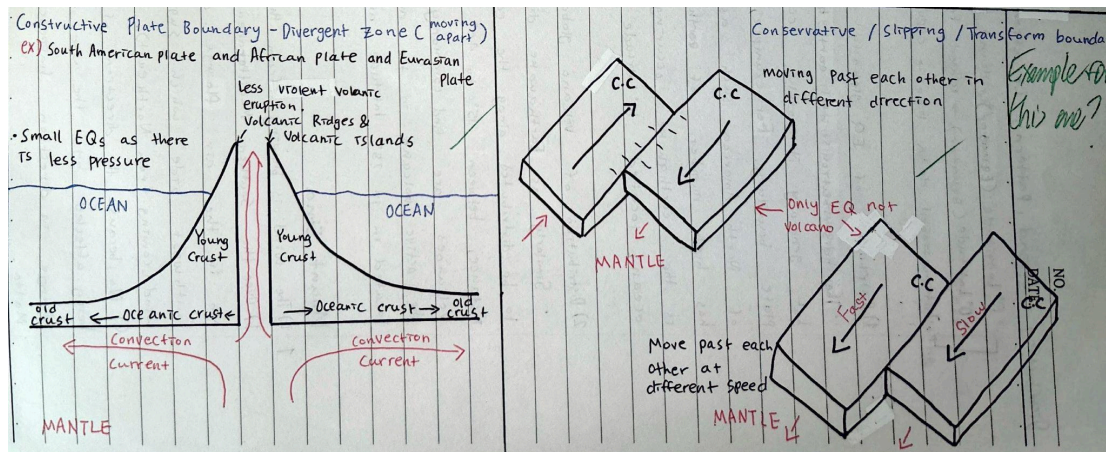 Constructive Plate Boundary - Divergent Zone (moving apart)
ex) South American plate and African plate and Eurasian
Plate
Less violent volvanic
eruption.
Volcanic Ridges &
Volcanic islands
• Small EQs as there
is less pressure
OCEAN
OCEAN
Young
Crust
Young
Crust
old
crust
Oceanic crust
Oceanic crust
old
crust
Convection
Current
Convection
Current
MANTLE
Conservative / Slipping / Transform bounda
moving past each other in
different direction
Example for
this one?
C.C
C.C
Only EQ not
volcano
MANTLE
C.C
C.C
Fast
Slow
NO.
DATE
Move past each
other at
different speed
MANTLE